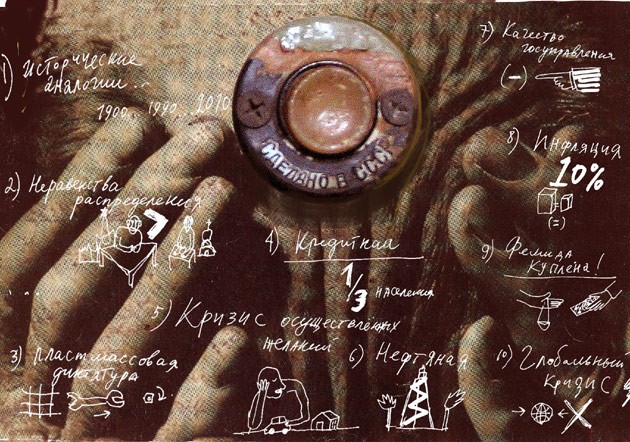 1) Исторические
аналогии...
1900... 1940... 2010
2) Неравенства
распределения
3) Пластмассовая
диктатура
2.
СДЕЛАНО В СССР
4) Кредитная
1/3 населения
5) Кризис осуществлённых
желаний
6) Нефтяная
7) Качество
госуправления
(-)
8) Инфляция
10%
(=)
9) Фемида
куплена!
10) Глобальный
кризис